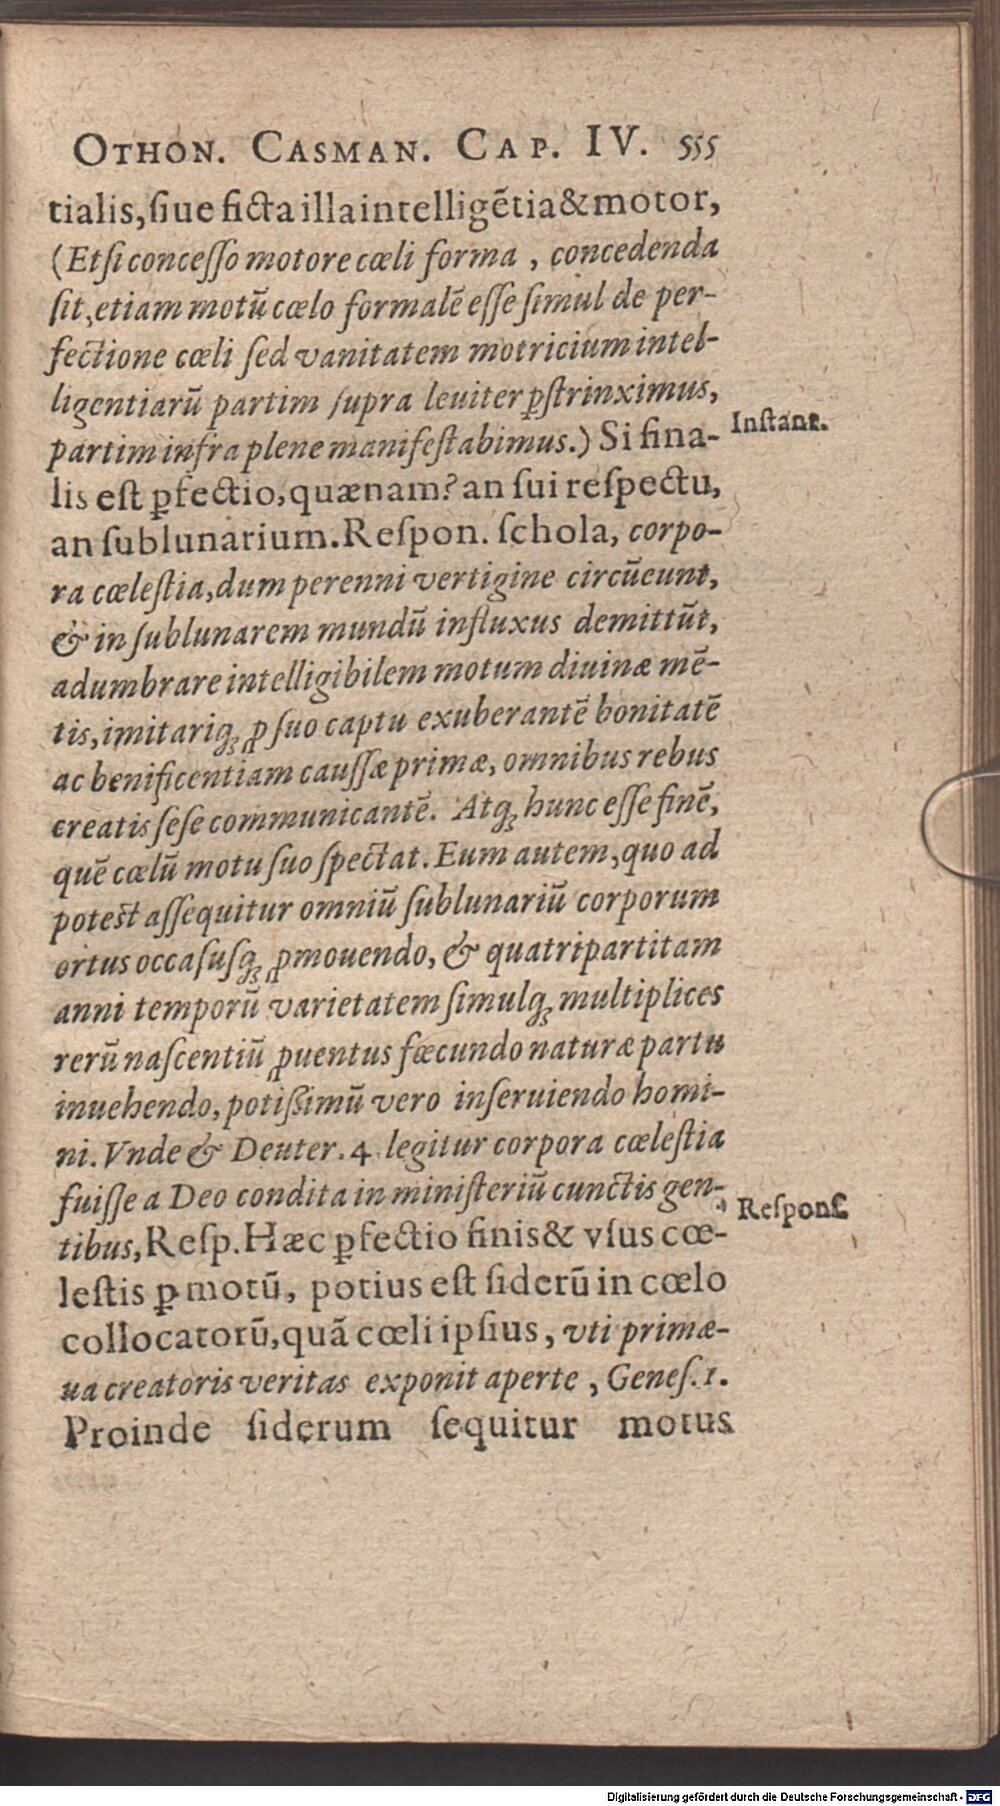 OTHON. CASMAN. CAP. IV. 555
tialis, ſiue ficta illa intelligẽtia & motor,
(Etſi conceſſo motore cœli forma, concedenda
ſit, etiam motũ cœlo formalẽ eſſe ſimul de per-
fectione cœli ſed vanitatem motricium intel-
ligentiarũ partim ſupra leuiter p̱ſtrinximus,
partim infra plene manifeſtabimus.) Si fina-
Inſtant.
lis eſt ꝑfectio, quænam? an ſui reſpectu,
an ſublunarium. Reſpon. ſchola, corpo-
ra cœleſtia, dum perenni vertigine circũeunt,
& in ſublunarem mundũ influxus demittũt,
adumbrare intelligibilem motum diuinæ mẽ-
tis, imitariq; ꝓ ſuo captu exuberantẽ bonitatẽ
ac benificentiam cauſſæ primæ, omnibus rebus
creatis ſeſe communicantẽ. Atq; hunc eſſe finẽ,
quẽ cœlũ motu ſuo ſpectat. Eum autem, quo ad
poteſt aſſequitur omniũ ſublunariũ corporum
ortus occaſuſq; ꝓmouendo, & quatripartitam
anni temporũ varietatem ſimulq; multiplices
rerũ naſcentiũ ꝓuentus fœcundo naturæ partu
inuehendo, potiſſimũ vero inſeruiendo homi-
ni. Vnde & Deuter. 4 legitur corpora cœleſtia
fuiſſe a Deo condita in miniſteriũ cunctis gen-
Reſponſ.
tibus, Reſp. Hæc ꝑfectio finis & vſus cœ-
leſtis ꝑ motũ, potius eſt ſiderũ in cœlo
collocatorũ, quã cœli ipſius, vti primæ-
ua creatoris veritas exponit aperte, Geneſ. 1.
Proinde ſiderum ſequitur motus
Digitalisierung gefördert durch die Deutsche Forschungsgemeinschaft - DFG